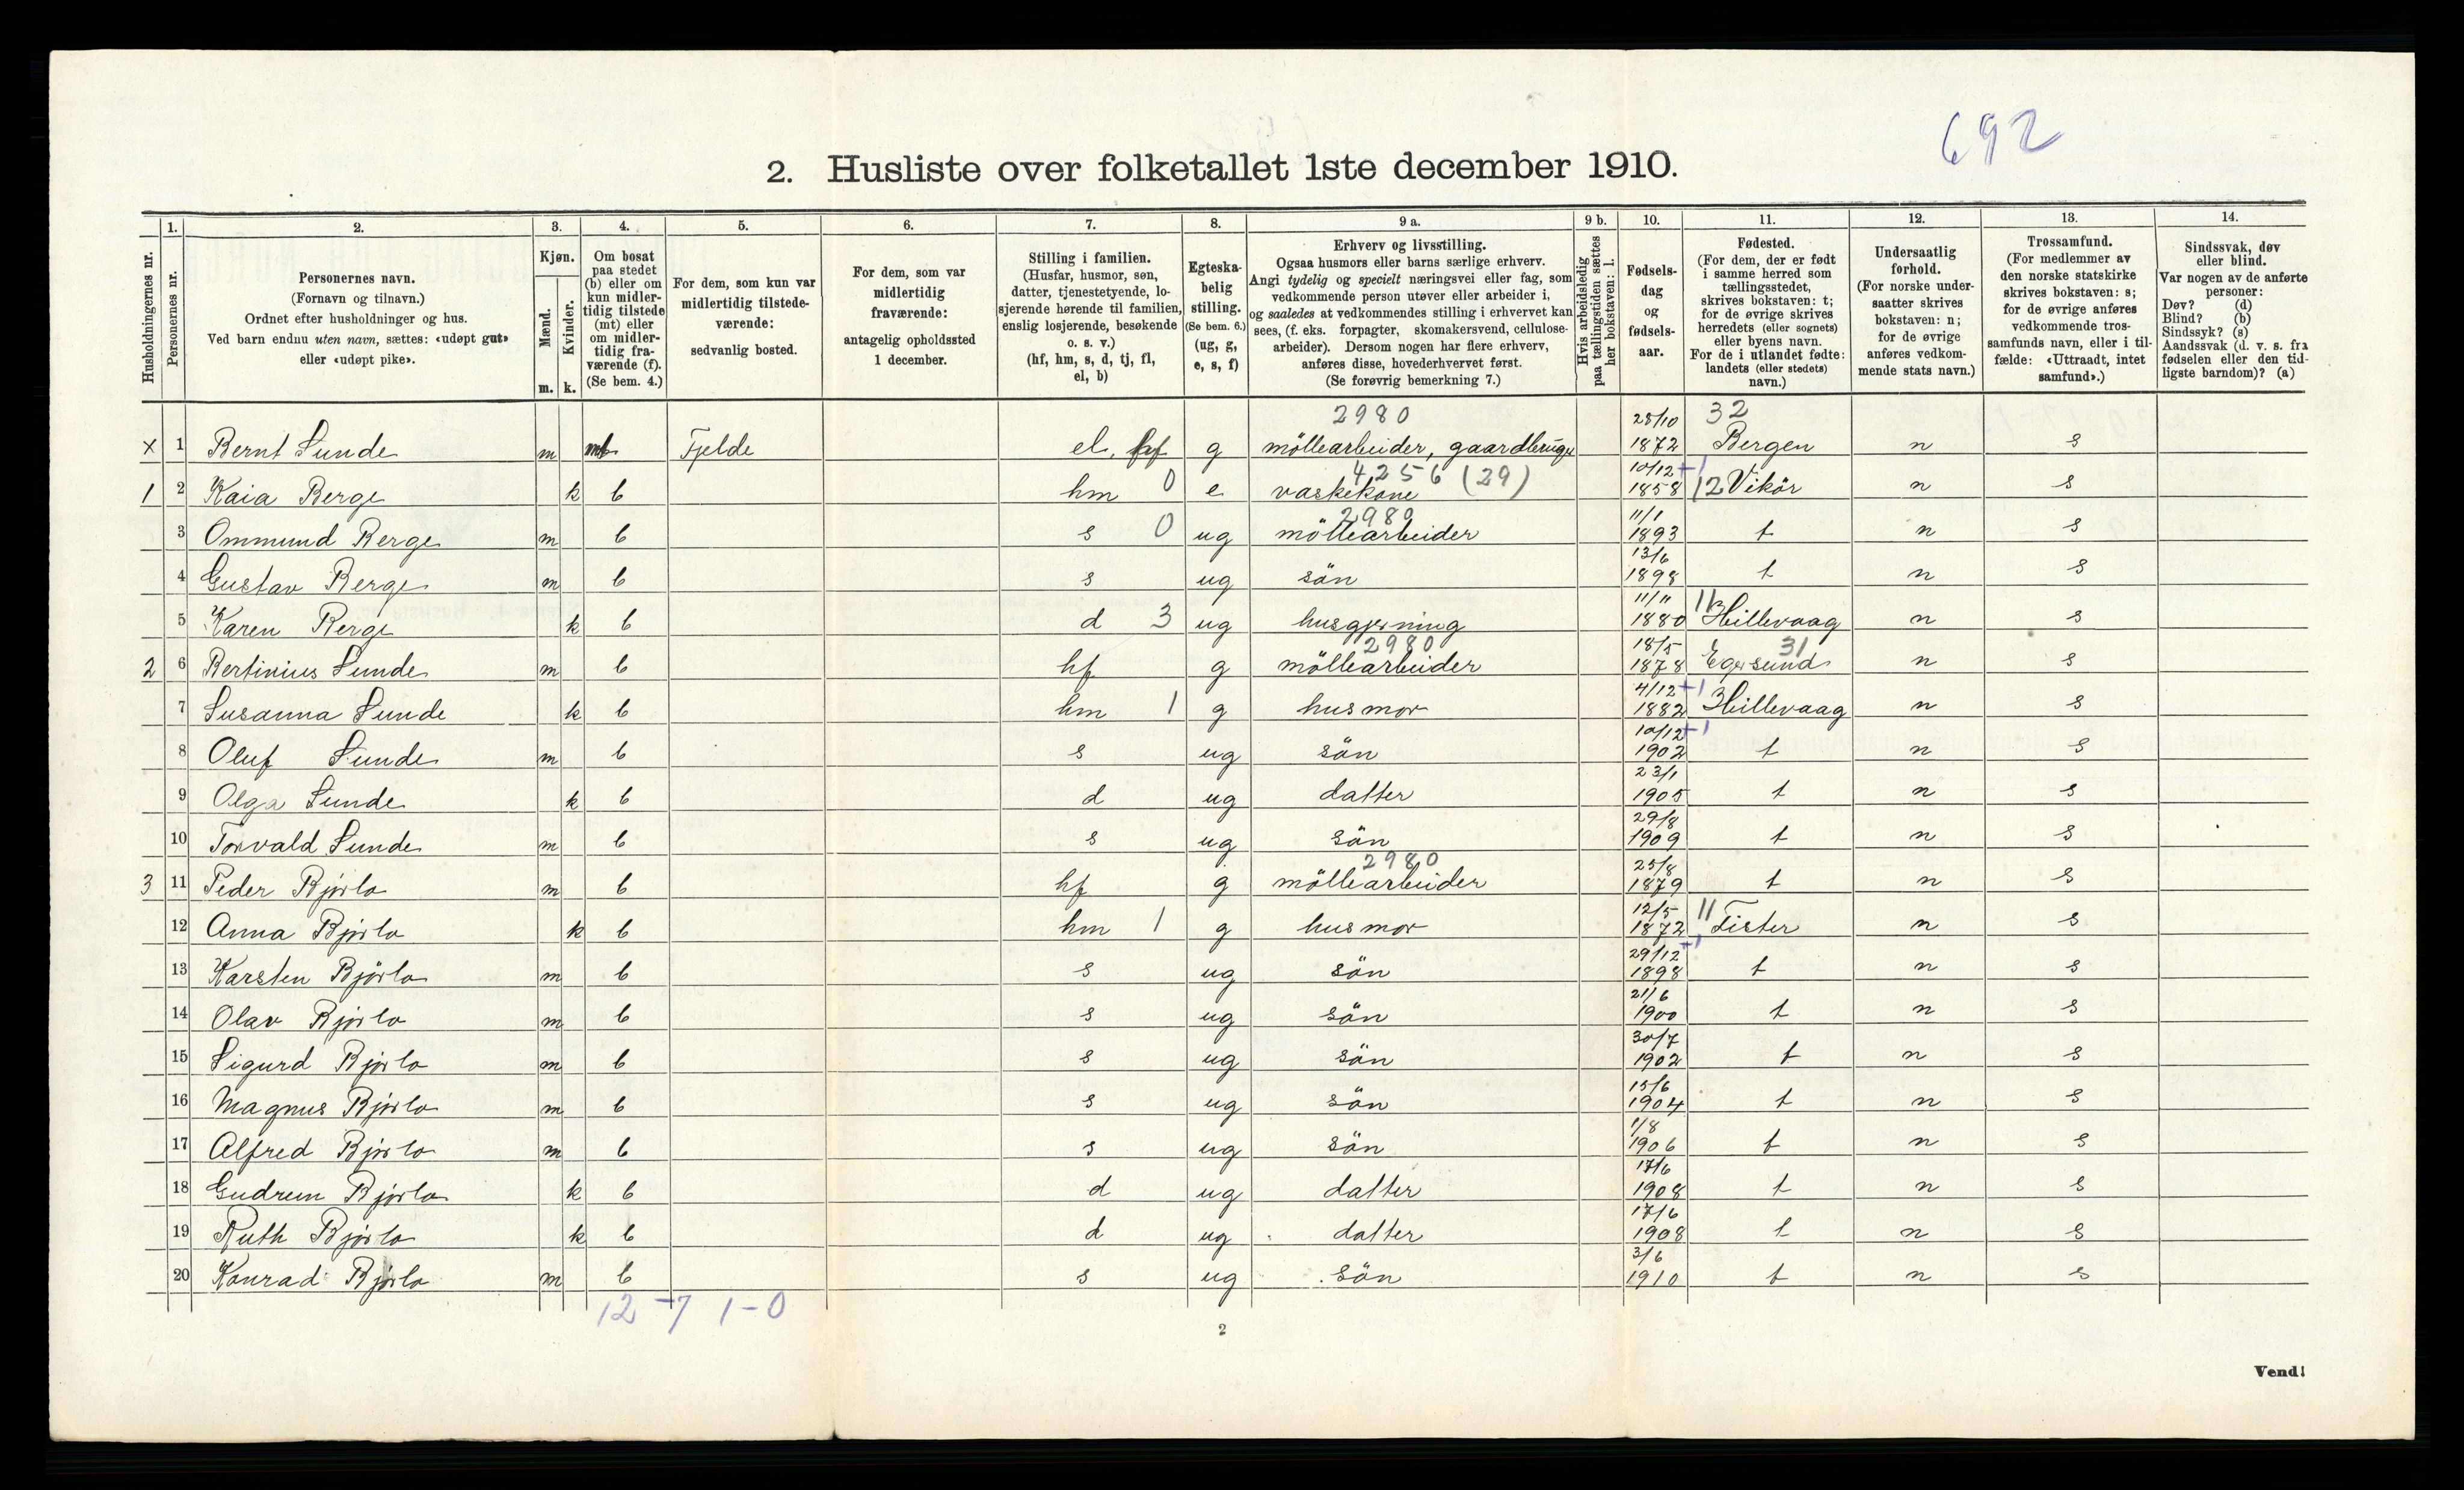 692
2. Husliste over folketallet 1ste december 1910.
Husholdningernes nr.
1. Personernes nr.
2. Personernes navn. (Fornavn og tilnavn.) Ordnet efter husholdninger og hus. Ved barn endnu uten navn, sættes: «udøpt gut» eller «udøpt pike».
3. Kjøn. Mænd. m. Kvinder. k.
4. Om bosat paa stedet (b) eller om kun midlertidig tilstede (mt) eller om midlertidig fraværende (f). (Se bem. 4.)
5. For dem, som kun var midlertidig tilstedeværende: sedvanlig bosted.
6. For dem, som var midlertidig fraværende: antagelig opholdssted 1 december.
7. Stilling i familien. (Husfar, husmor, søn, datter, tjenestetyende, losjerende hørende til familien, enslig losjerende, besøkende o. s. v.) (hf, hm, s, d, tj, fl, el, b)
8. Egteskabelig stilling. (Se bem. 6.) (ug, g, e, s, f)
9 a. Erhverv og livsstilling. Ogsaa husmors eller barns særlige erhverv. Angi tydelig og specielt næringsvei eller fag, som vedkommende person utøver eller arbeider i, og saaledes at vedkommendes stilling i erhvervet kan sees, (f. eks. forpagter, skomakersvend, cellulosearbeider). Dersom nogen har flere erhverv, anføres disse, hovederhvervet først. (Se forøvrig bemerkning 7.)
9 b. Hvis arbeidsledig paa tællingstiden sættes her bokstaven: l.
10. Fødselsdag og fødselsaar.
11. Fødested. (For dem, der er født i samme herred som tællingsstedet, skrives bokstaven: t; for de øvrige skrives herredets (eller sognets) eller byens navn. For de i utlandet fødte: landets (eller stedets) navn.)
12. Undersaatlig forhold. (For norske undersaatter skrives bokstaven: n; for de øvrige anføres vedkommende stats navn.)
13. Trossamfund. (For medlemmer av den norske statskirke skrives bokstaven: s; for de øvrige anføres vedkommende trossamfunds navn, eller i tilfælde: «Uttraadt, intet samfund».)
14. Sindssvak, døv eller blind. Var nogen av de anførte personer: Døv? (d) Blind? (b) Sindssyk? (s) Aandssvak (d. v. s. fra fødselen eller den tidligste barndom)? (a)
x 1 Bernt Sunde m mt Fjelde el, g 2980 möllearbeider, gaardbruger 25/10 1872 32 Bergen n s
1 2 Kaia Berge k b hm 0 e 4256 (29) vaskekone 10/12 +1 1858 12 Vikör n s
3 Ommund Berge m b s 0 ug 2980 möllearbeider 11/1 1893 t n s
4 Gustav Berge m b s ug sön 13/6 1898 t n s
5 Karen Berge k b d 3 ug husgjerning 11/11 1880 11 Hillevaag n s
2 6 Bertinius Sunde m b hf g 2980 möllearbeider 18/5 1878 31 Egersund n s
7 Susanna Sunde k b hm 1 g husmor 4/12 +1 1882 Hillevaag n s
8 Oluf Sunde m b s ug sön 10/12 +1 1902 t n s
9 Olga Sunde k b d ug datter 23/1 1905 t n s
10 Torvald Sunde m b s ug sön 29/8 1909 t n s
3 11 Peder Bjørlo m b hf g 2980 möllearbeider 25/8 1879 t n s
12 Anna Bjørlo k b hm 1 g husmor 12/5 1872 11 Lister n s
13 Karsten Björlo m b s ug sön 29/12 +1 1898 t n s
14 Olav Bjørlo m b s ug sön 21/6 1900 t n s
15 Sigurd Bjørlo m b s ug sön 30/7 1902 t n s
16 Magnus Bjørlo m b s ug sön 15/6 1904 t n s
17 Alfred Bjørlo m b s ug sön 1/8 1906 t n s
18 Gudrun Bjørlo k b d ug datter 17/6 1908 t n s
19 Ruth Bjørlo k b d ug datter 17/6 1908 t n s
20 Konrad Bjørlo m b s ug sön 3/6 1910 t n s
12-7 1-0
2
Vend!